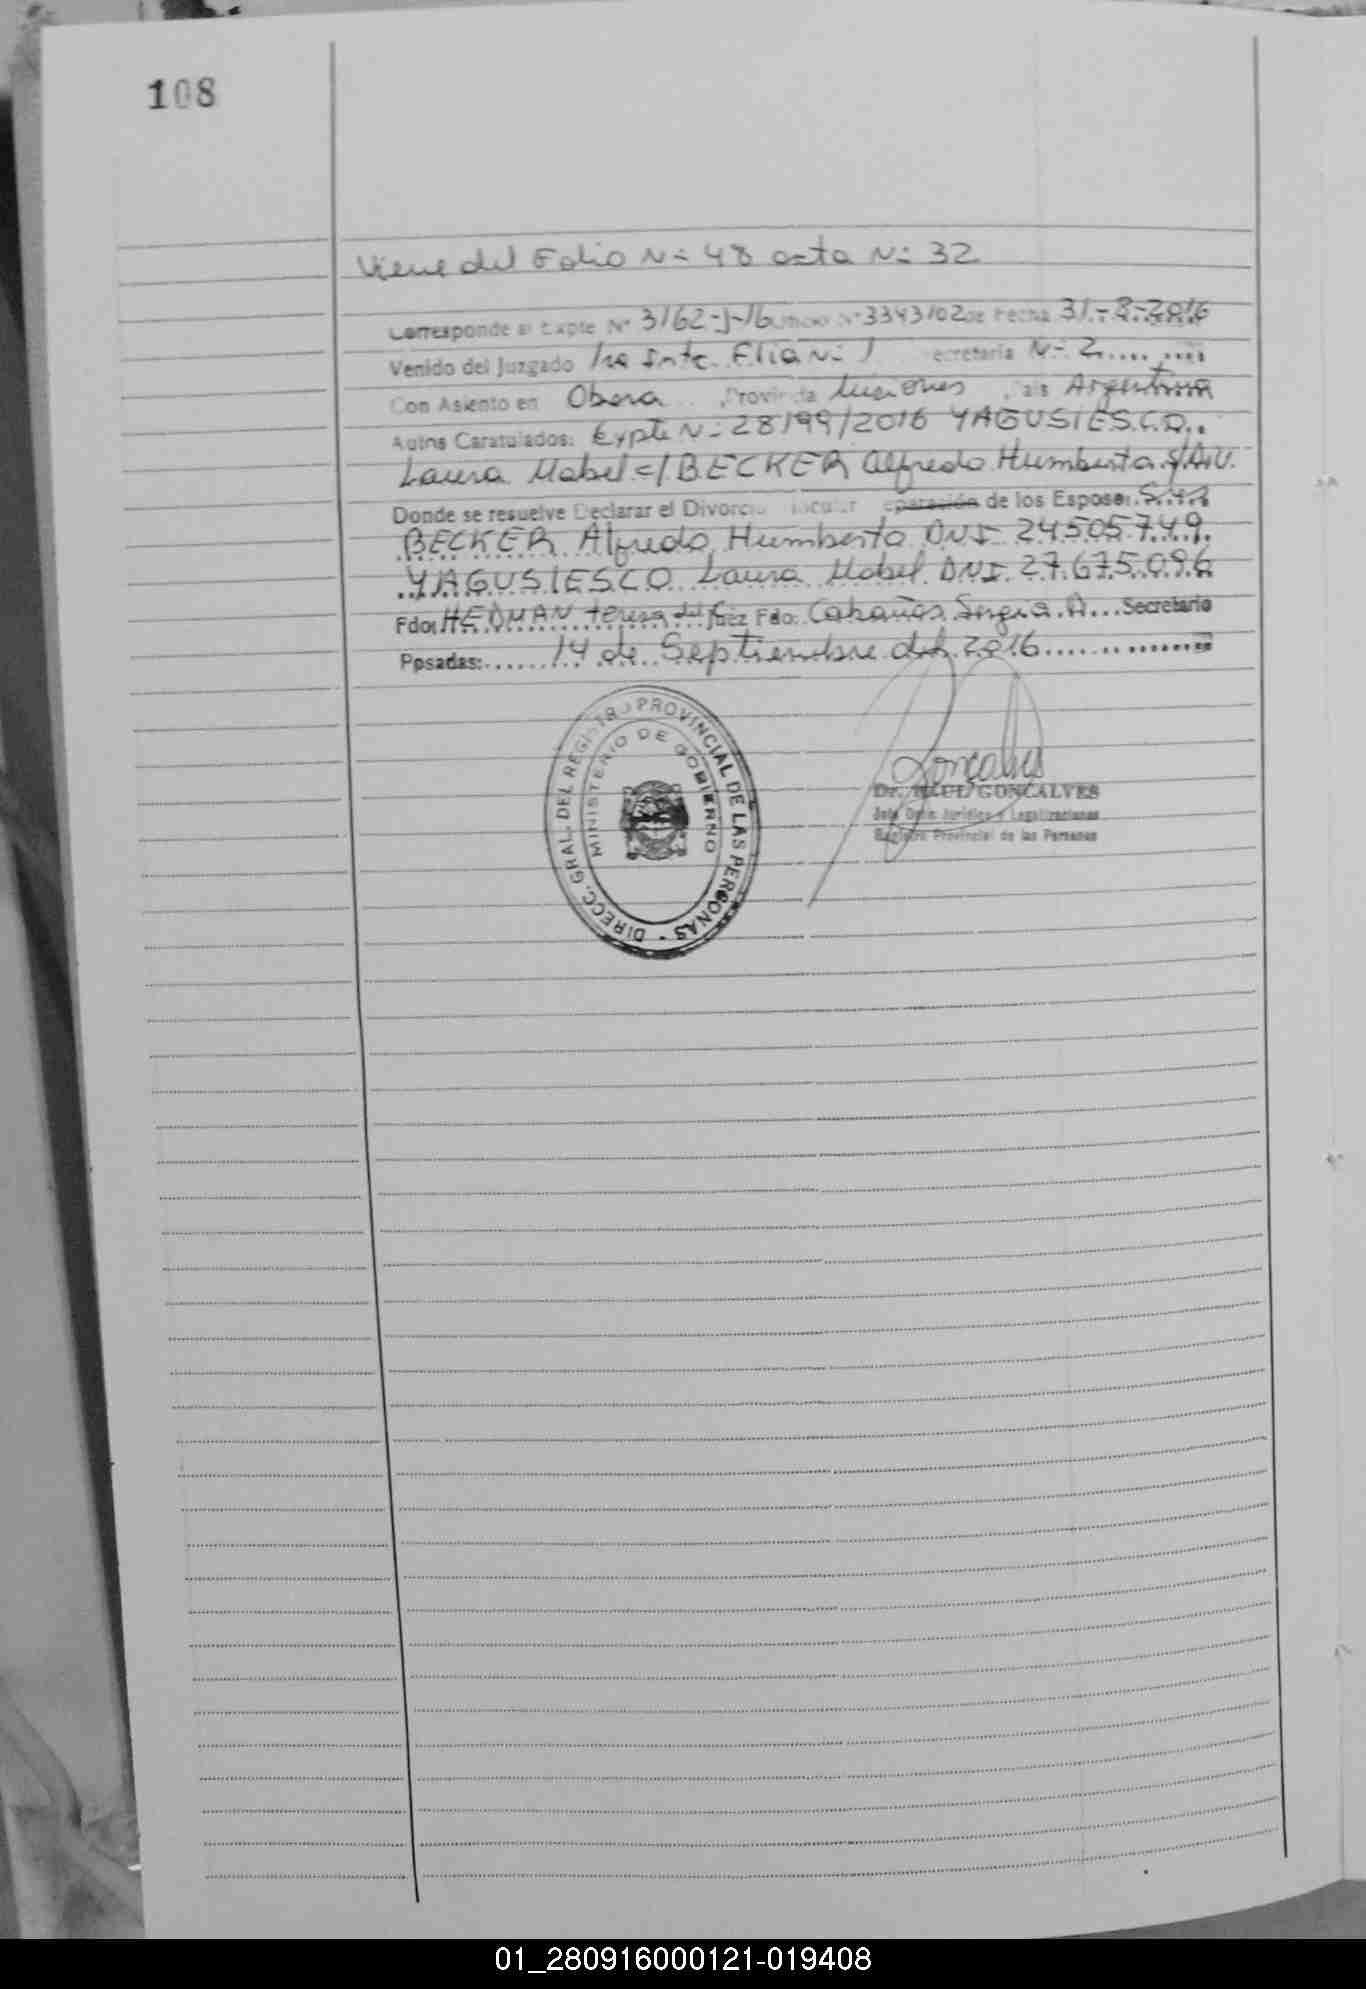 108
Viene del Folio Nº 48 acta Nº 32
Corresponde al Expte Nº 3162-J-16 Oficio Nº 3343102 de Fecha 31-8-2016
Venido del Juzgado 1ra Inte. Flia Nº 1 Secretaria Nº 2
Con Asiento en Obera Provincia Misiones Pais Argentina
Autos Caratulados: Expte Nº 28199/2016 YAGUSIESCO
Laura Mabel c/ BECKER Alfredo Humberto S/D.V.
Donde se resuelve Declarar el Divorcio Vincular Separación de los Esposos: Sres
BECKER Alfredo Humberto DNI 24.505.749
YAGUSIESCO Laura Mabel DNI 27.675.096
Fdo: HEDMAN Teresa del C. Juez Fdo: Cabañas Sergio A. Secretario
Posadas: 14 de Septiembre del 2016
DIRECC. GRAL. DEL REGISTRO PROVINCIAL DE LAS PERSONAS
MINISTERIO DE GOBIERNO
Goncalves
Dr. RAUL GONCALVES
Jefe Dpto Jurídico y Legalizaciones
Registro Provincial de las Personas
01_280916000121-019408